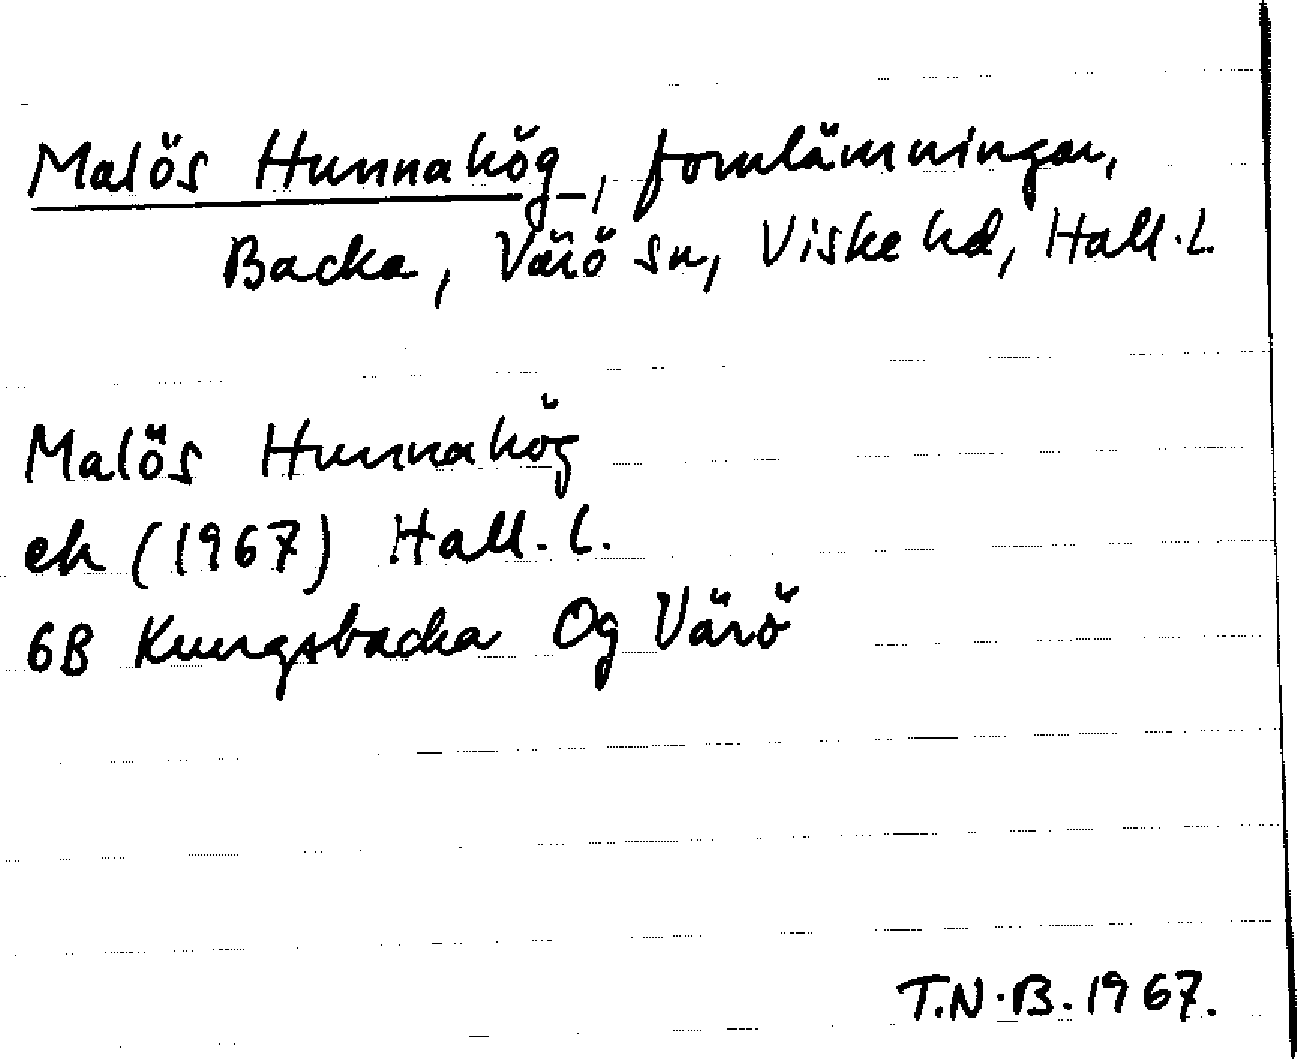 Malös Hunnahög, fornlämningar,
Backa, Värö sn, Viske hd, Hall. l.
Malös Hunnahög
ek (1967) Hall. l.
6B Kungsbacka Og Värö
T.N.B. 1967.